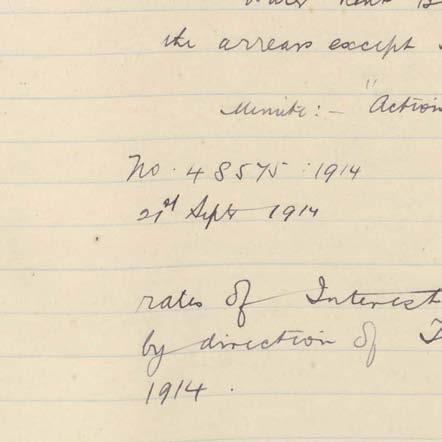 the arrears except
Minute:- "Action
No. 48575 : 1914
21st Sept 1914
rates of Interest
by direction of
1914.